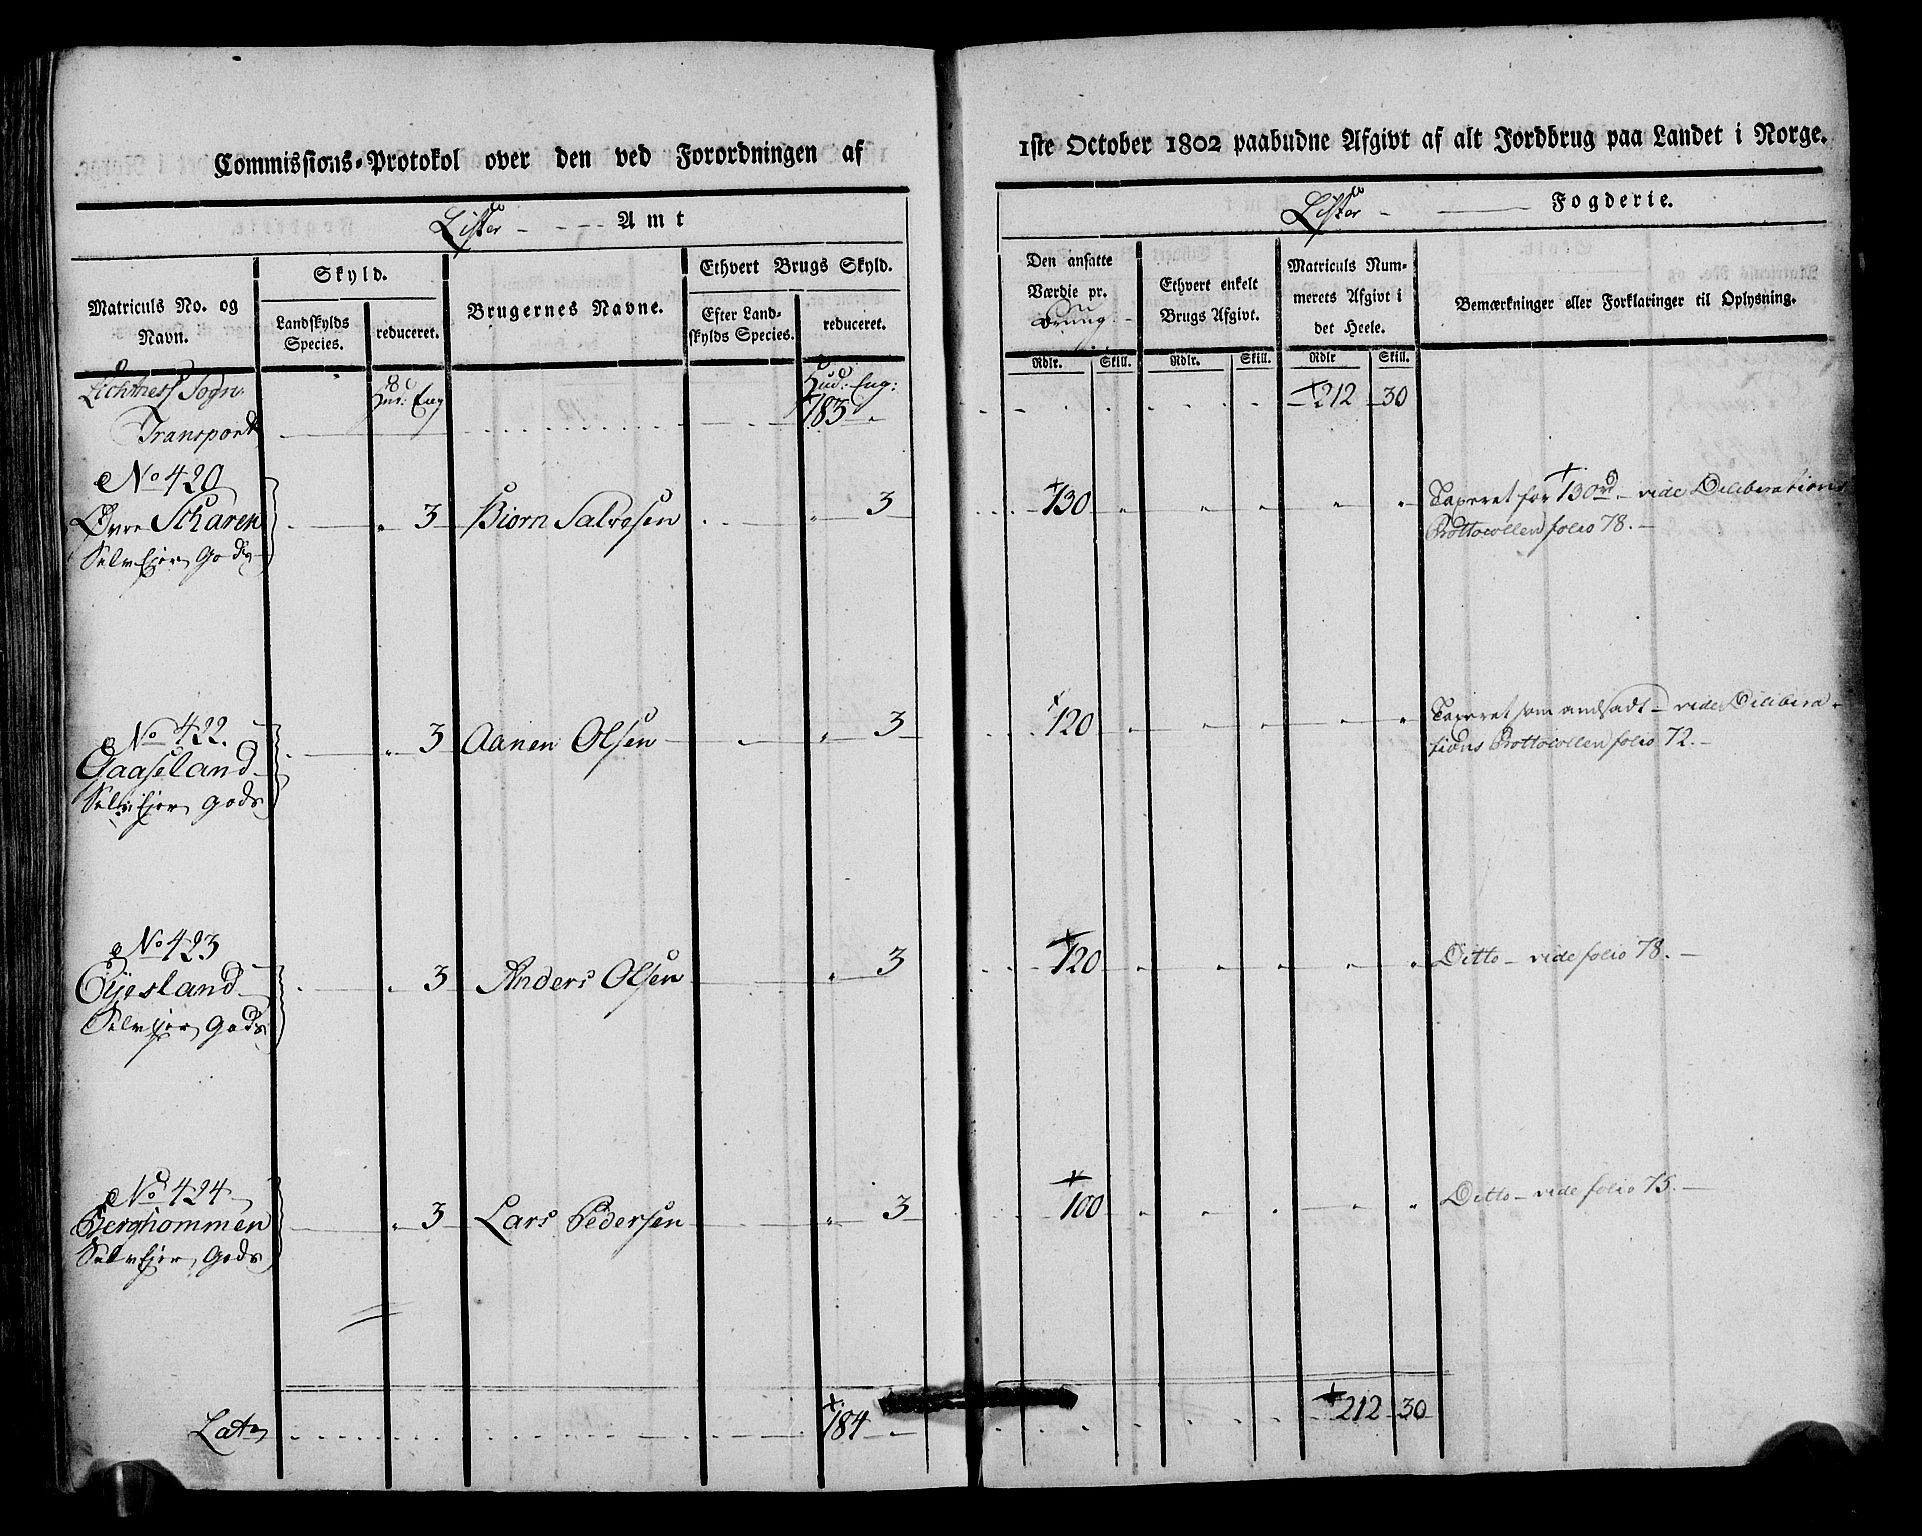 Commissions-Protokol over den ved Forordningen af
Lister - - - - Amt
Matriculs No. og Navn.
Skyld.
Landskylds Species.
reduceret.
Brugernes Navne.
Ethvert Brugs Skyld.
Efter Landskylds Species.
reduceret.
Sogn
Hud: Eng:
Transport
183
No 420
Øvre Scharen
Selveier Gods
3 Biorn Salvesen 3
No 422.
Gaaseland
Selveier Gods
3 Aanen Olsen 3
No 423
Eyesland
Selveier Gods
3 Anders Olsen 3
No 424
Berghommen
Selveier Gods
3 Lars Pedersen 3
Lats 184
1ste October 1802 paabudne Afgivt af alt Jordbrug paa Landet i Norge.
Lister - Fogderie.
Den ansatte Værdie pr.
Ethvert enkelt Brugs Afgivt.
Matriculs Nummerets Afgivt i det Heele.
Bemærkninger eller Forklaringer til Oplysning.
Rdlr. Skill. Rdlr. Skill. Rdlr Skill.
212 30
130
Taxeret for 130rd - vide Deliberations
Prottocollen folio 78. -
120
Taxeret som andsadt - vide Delibera-
tions Prottocollen folio 72. -
120
Ditto - vide folio 78. -
100
Ditto - vide folio 75. -
212 30